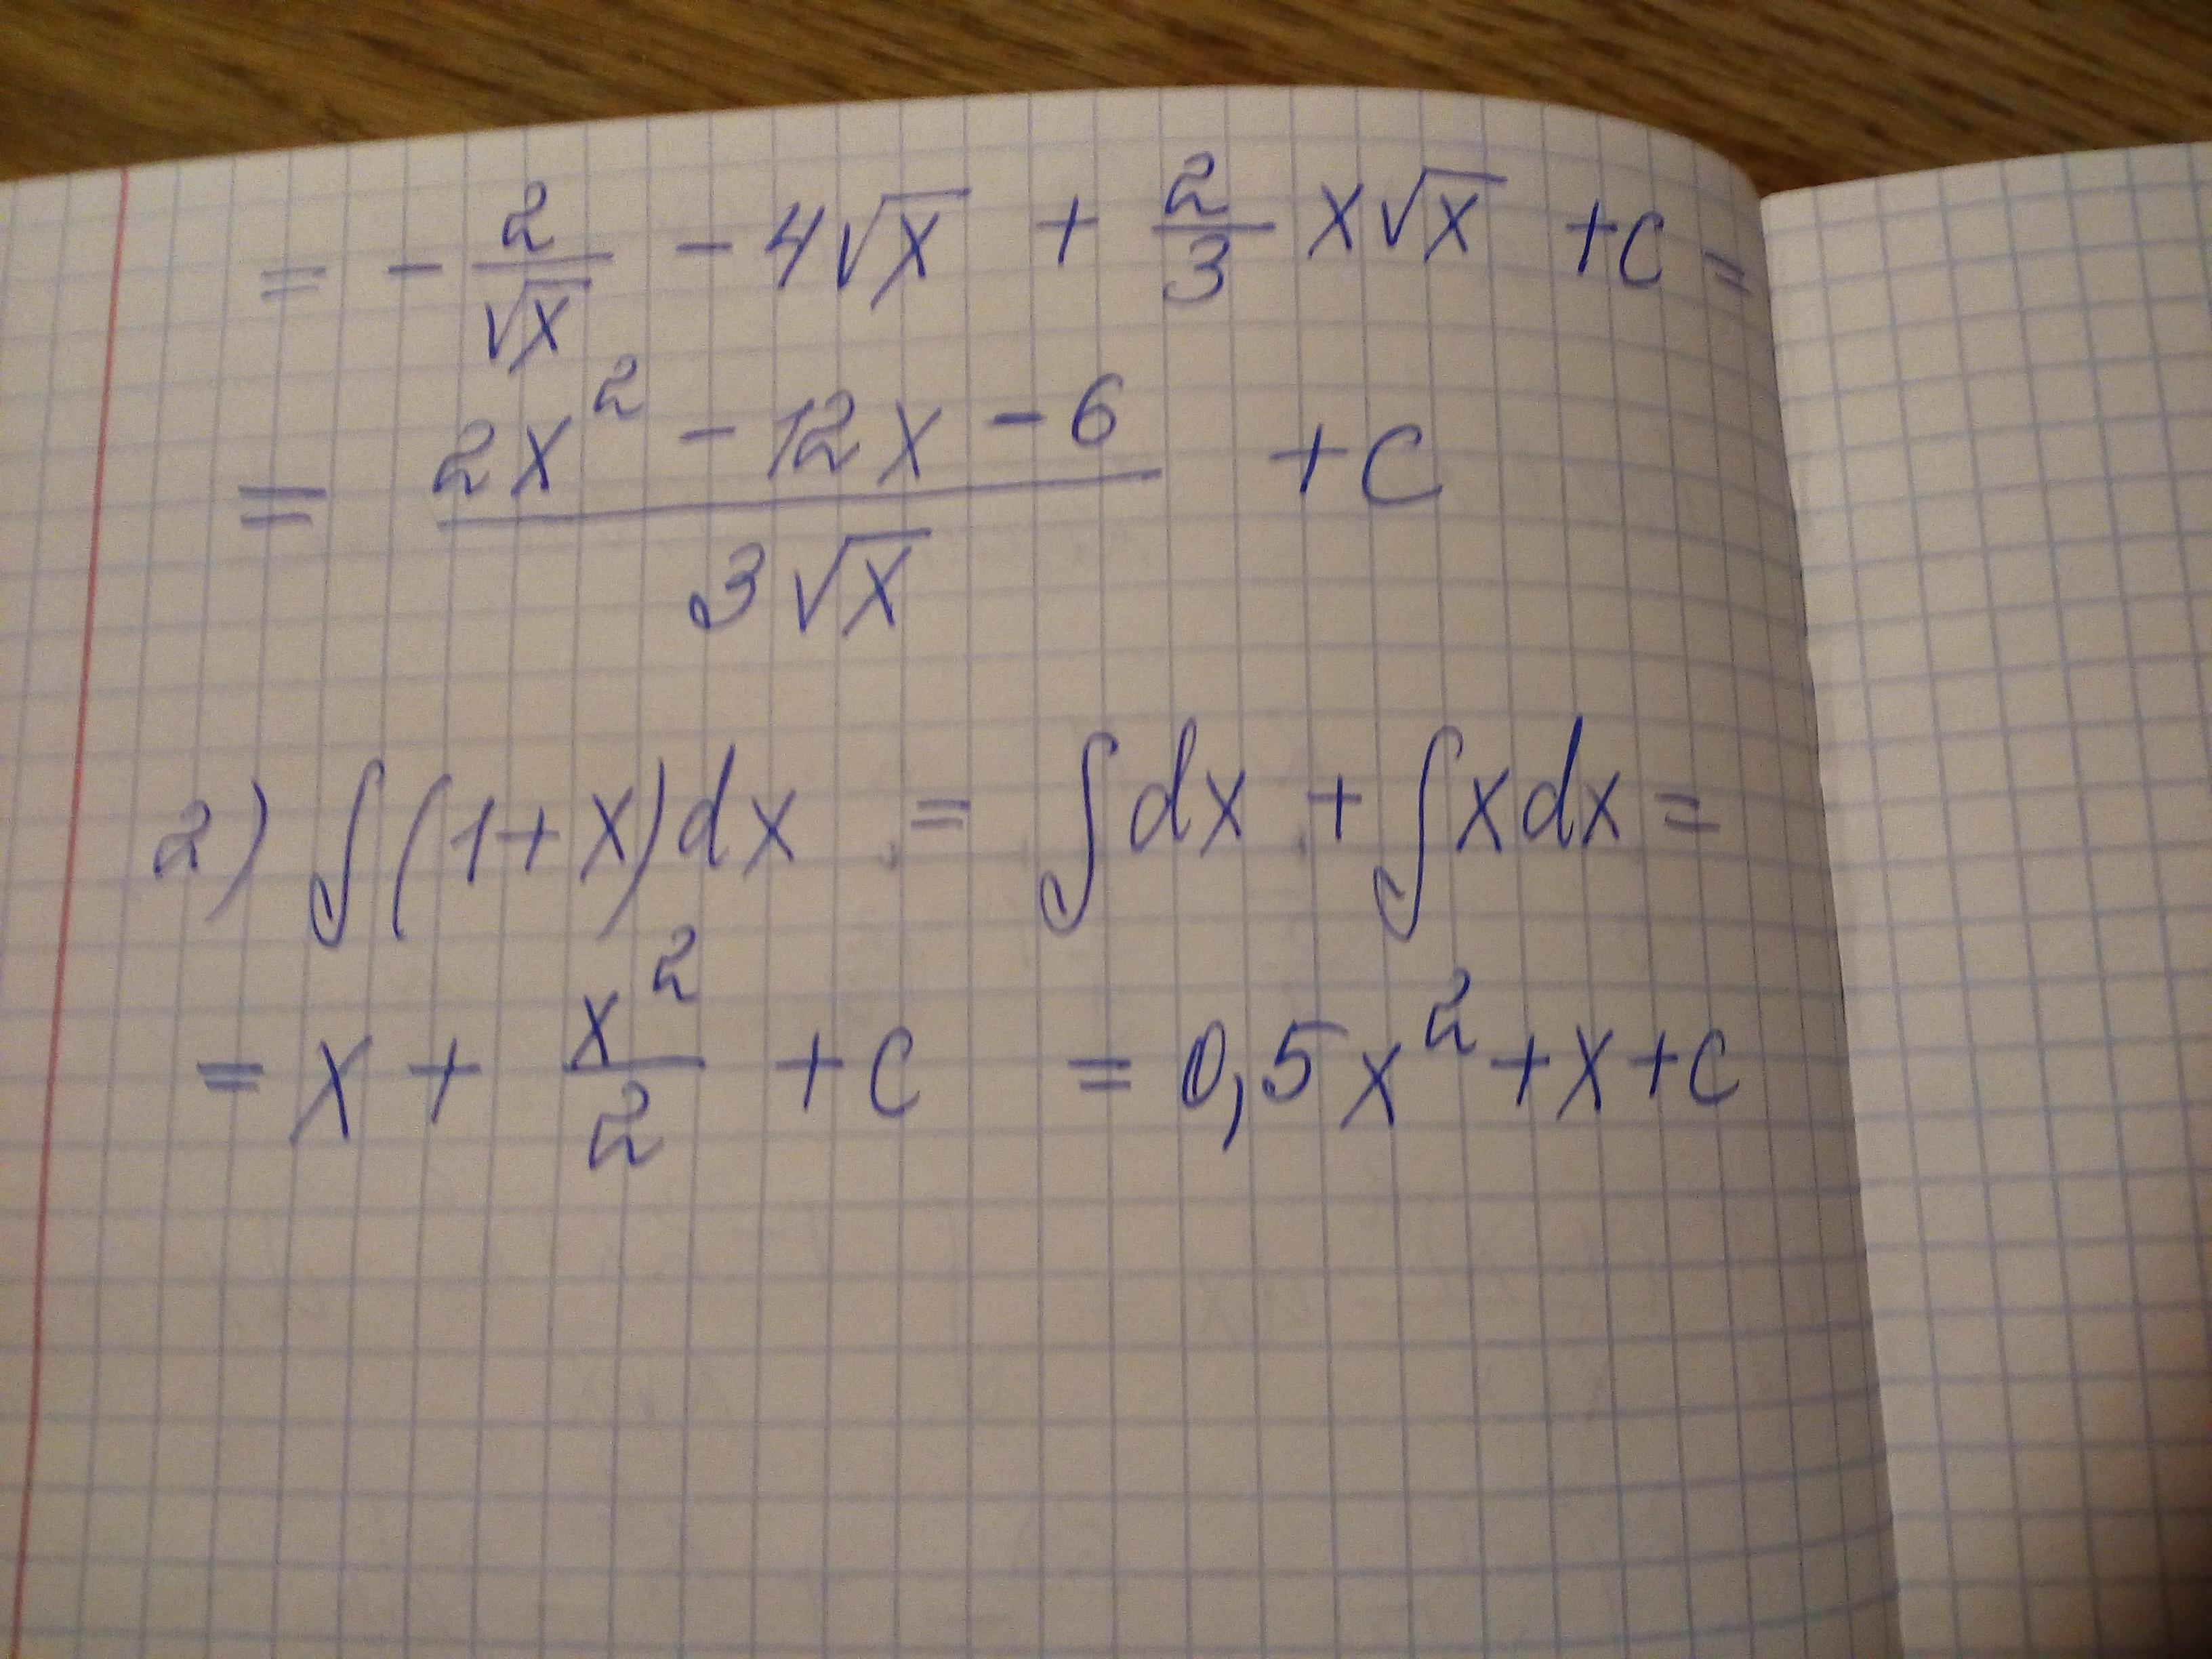 = - 2/√x - 4√x + 2/3 x√x + c =
= (2x² - 12x - 6)/(3√x) + c
2) ∫(1+x)dx = ∫dx + ∫xdx =
= x + x²/2 + c = 0,5x² + x + c